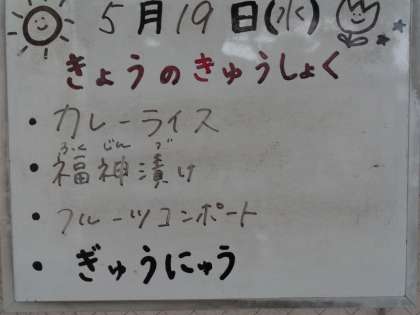 5月19日(水)
きょうのきゅうしょく
・カレーライス
ふくじんづ
・福神漬け
・フルーツコンポート
・ぎゅうにゅう